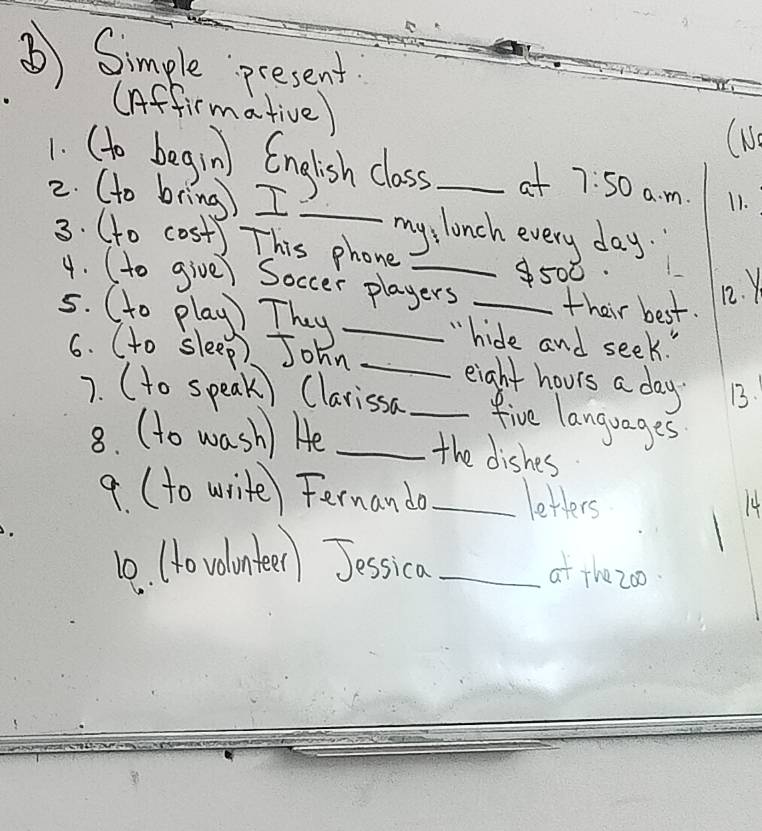 B) Simple present.
(Affirmative)
1. (to begin) English class ____ at 7:50 a.m.
2. (to bring) I ____ my lunch every day.
3. (to cost) This phone ____ $500.
4. (to give) Soccer players ____ their best.
5. (to play) They ____ "hide and seek."
6. (to sleep) John ____ eight hours a day.
7. (to speak) Clarissa ____ five languages.
8. (to wash) He ____ the dishes.
9. (to write) Fernando ____ letters
10. (to volunteer) Jessica ____ at the zoo.
11.
12. Y
13.
14